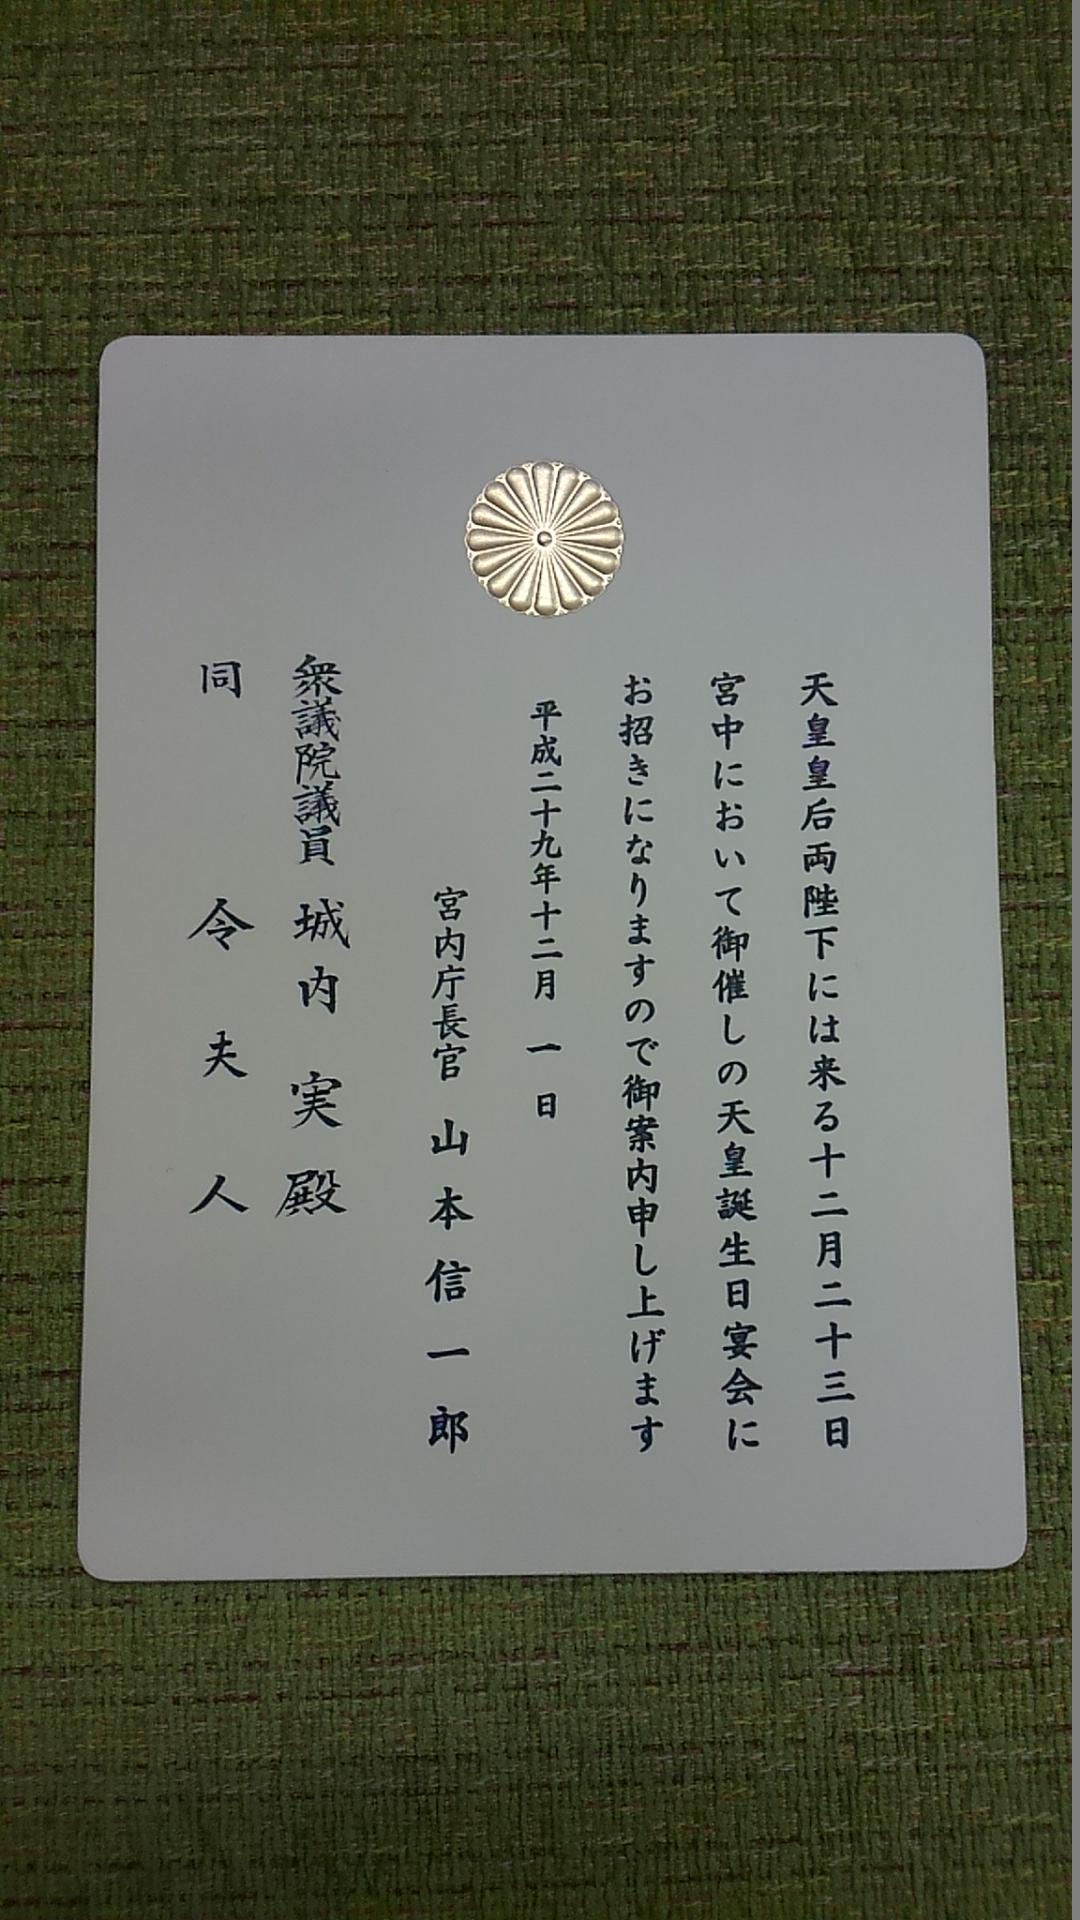 天皇皇后両陛下には来る十二月二十三日
宮中において御催しの天皇誕生日宴会に
お招きになりますので御案内申し上げます
平成二十九年十二月一日
宮内庁長官 山本信一郎
衆議院議員 城内 実 殿
同 令夫人